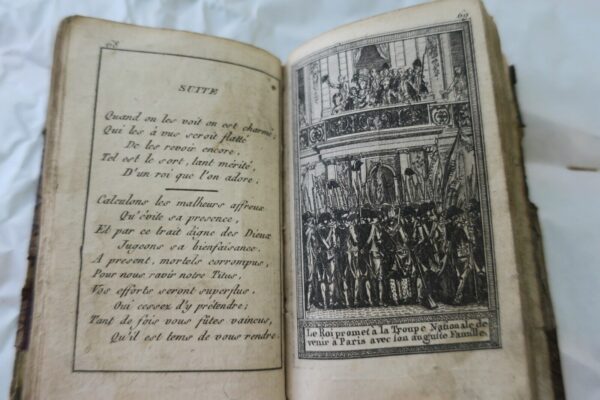 SUITE
Quand on les voit on est charmé,
Qui les à vus seroit flatté
De les revoir encore,
Tel est le sort, tant mérité,
D'un roi que l'on adore;
Calculons les malheurs affreux
Qu'évite sa presence,
Et par ce trait digne des Dieux
Jugeons sa bienfaisance.
A present, mortels corrompus,
Pour nous ravir notre Titus,
Vos efforts seront superflus,
Oui cessez d'y prétendre;
Tant de fois vous fûtes vaincus,
Qu'il est tems de vous rendre.
69
Le Roi promet a la Troupe Nationale de
venir a Paris avec son auguste Famille.